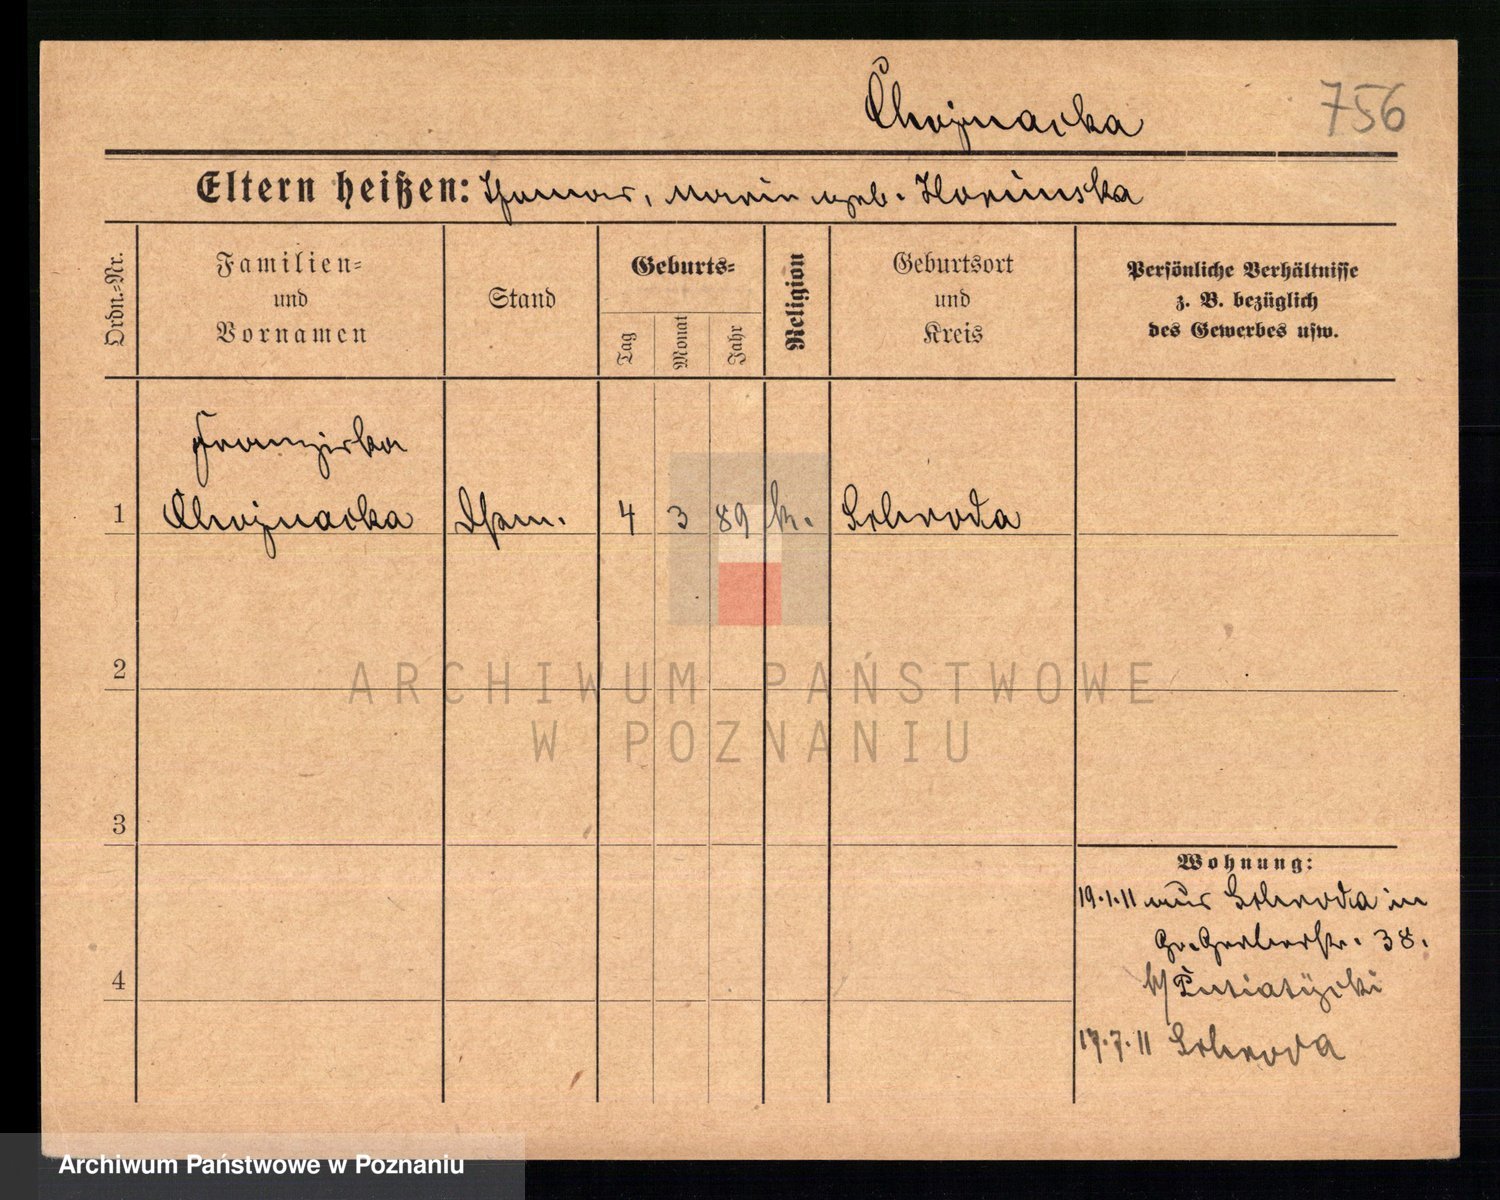 Chojnacka
756
Eltern heißen: Thomas, Marie geb. Florinska
Ordn.-Nr.
Familien-
und
Vornamen
Stand
Geburts-
Tag
Monat
Jahr
Religion
Geburtsort
und
Kreis
Persönliche Verhältnisse
z. B. bezüglich
des Gewerbes usw.
Franziska
1 Chojnacka Dhm. 4 3 89 k. Schroda
2
ARCHIWUM PAŃSTWOWE
W POZNANIU
3
Wohnung:
19.1.11 aus Schroda in
Gr. Gerberstr. 38.
4
b/
17.7.11 Schroda
Archiwum Państwowe w Poznaniu